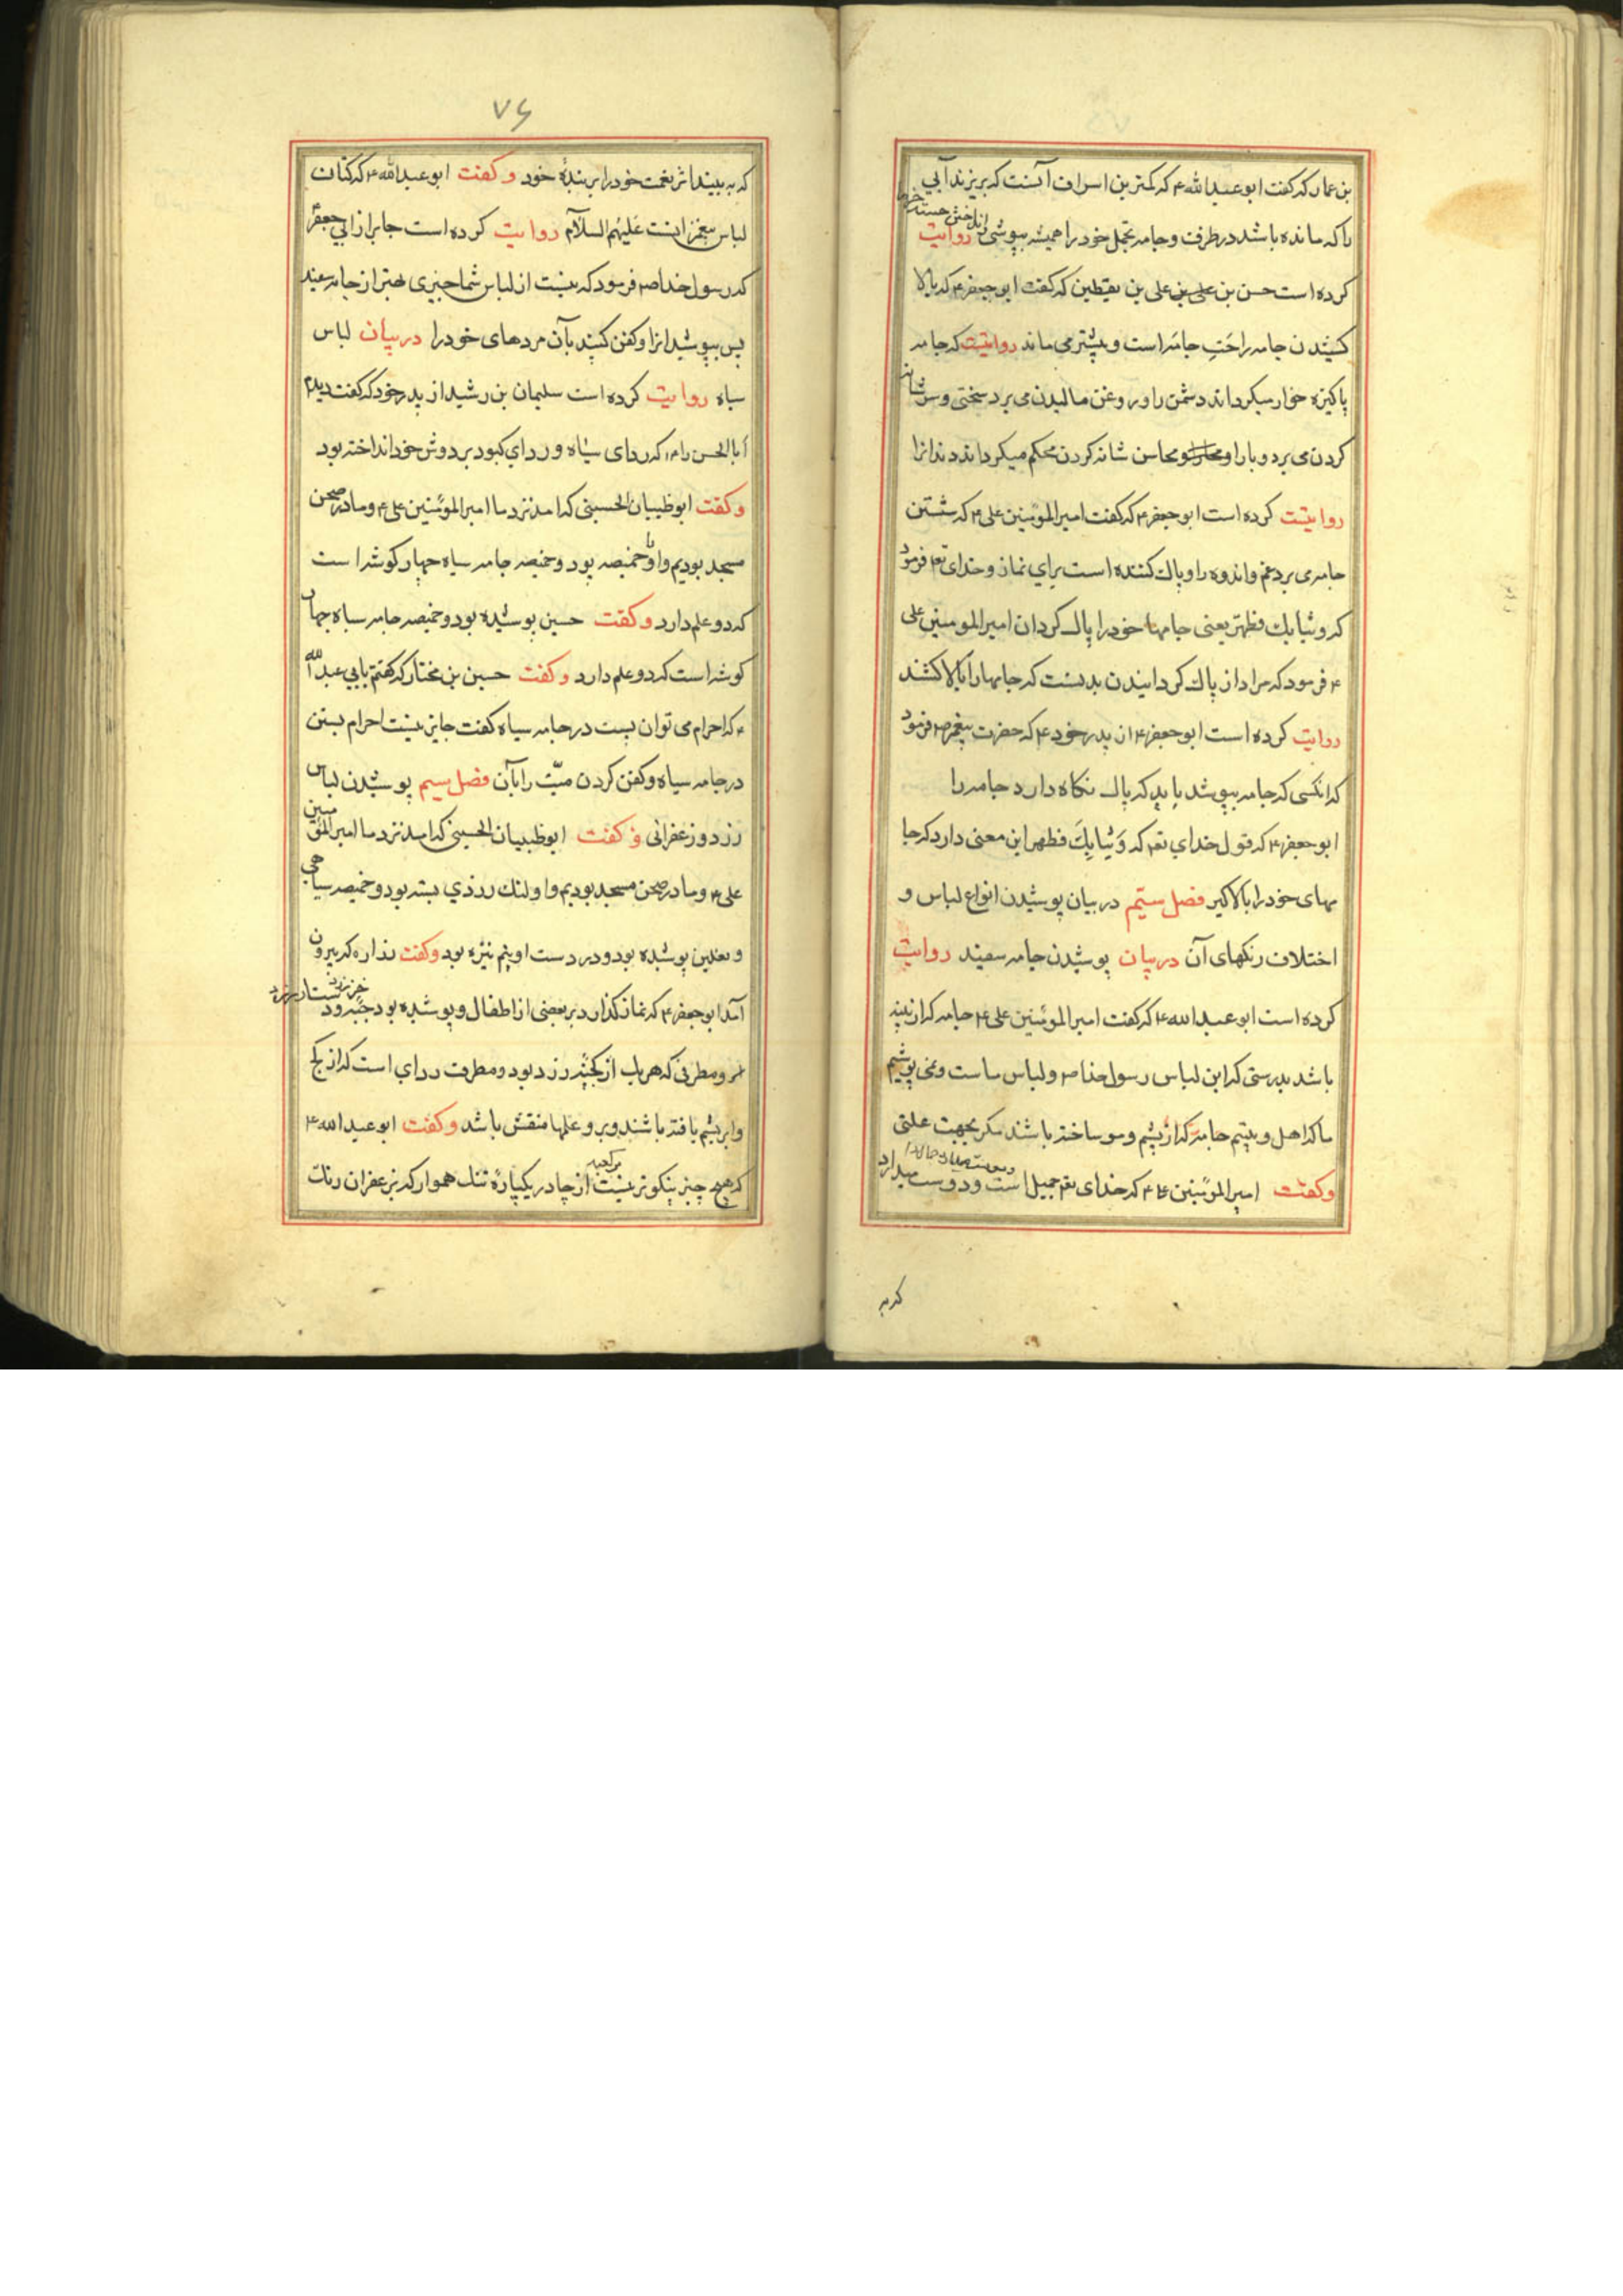 بن عمار که کفت ابو عبد الله ۴ که کمترین اسراف آنست که بریزند آبی
را که مانده باشد در ظرفت و جامه تجمل خود را همیشه بپوشی روایت
کرده است حسن بن علی بن علی بن یقطین که کفت ابو جعفر ۴ که بالا
کشیدن جامه راحت جامه است و بیشتر می ماند روایتست که جامه
پاکیزه خوار میکرداند دشمن را و روغن مالیدن می برد سختی و سر شانه
کردن می برد وبا را و محاسن شانه کردن محکم میکرداند دندانرا
روایتست کرده است ابو جعفر ۴ که کفت امیر المؤمنین علی ۴ که شستن
جامه می برد غم و اندوه را و پاک کننده است برای نماز و خدای تع فرمود
که وثیابک فطهر یعنی جامها خود را پاک کردان امیر المومنین علی
۴ فرمود که مراد از پاک کردانیدن بدنست که جامها را بالا کشند
روایت کرده است ابو جعفر ۴ از پدر خود ۴ که حضرت پیغمبر ص فرمود
که انکسی که جامه بپوشد باید که پاک نکاه دارد جامه را
ابو جعفر ۴ که قول خدای تع که وثیابک فطهر این معنی دارد که جا
مهای خود را بالا کیر فصل ستیم در بیان پوشیدن انواع لباس و
اختلاف رنکهای آن در بیان پوشیدن جامه سفید روایت
کرده است ابو عبد الله ۴ که کفت امیر المؤمنین علی ۴ جامه که از پنبه
باشد بدرستی که این لباس رسول خدا ص و لباس ماست و نمی پوشیم
ما که اهل و بیتیم جامه که از پشم و مو ساخته باشند مکر بجهت علتی
وکفت امیر المؤمنین ۴ که خدای تع جمیل است و دوست میدارد
که به
۷۶
که به بیند اثر نعمت خود را بر بندهٔ خود وکفت ابو عبد الله ۴ که کتان
لباس پیغمبرانست علیهم السلام روایت کرده است جابر از ابی جعفر
که رسول خدا ص فرمود که نیست از لباس شما چیزی بهتر از جامه سفید
پس بپوشید انرا و کفن کنید بآن مردهای خود را در بیان لباس
سیاه روایت کرده است سلیمان بن رشید از پدر خود که کفت دیدم
ابا الحسن را ۴ که ردای سیاه و ردای کبود بر دوش خود انداخته بود
وکفت ابو ظبیان الحسینی که امد نزد ما امیر المؤمنین علی ۴ و ما در صحن
مسجد بودیم و او با خمیصه بود و خمیصه جامه سیاه چهار کوشه است
که دو علم دارد وکفت حسین پوشیده بود و خمیصه جامه سیاه چهار
کوشه است که دو علم دارد وکفت حسین بن مختار که کفتم بابی عبد الله
۴ که احرام می توان بست در جامه سیاه کفت جایز نیست احرام بستن
در جامه سیاه و کفن کردن میت را بآن فصل سیم پوشیدن لباس
زرد و زعفرانی و کفت ابو ظبیان الحسینی که امد نزد ما امیر المؤمنین
علی ۴ و ما در صحن مسجد بودیم و او لنک زردی بسته بود و خمیصه سیاهی
و نعلین پوشیده بود و در دست او نیم نیزه بود وکفت زراره که بیرون
آمد ابو جعفر ۴ که نماز کذارد بر بعضی از اطفال و پوشیده بود جبه
و مطرفی که هر باب از کجنه زرد بود و مطرف ردای است که از کج
و ابریشم بافته باشند و بر و علمها منقش باشد وکفت ابو عبد الله ۴
که هیچ چیز نیکوتر نیست از چادر یکپاره تنک هموار که بزعفران رنک